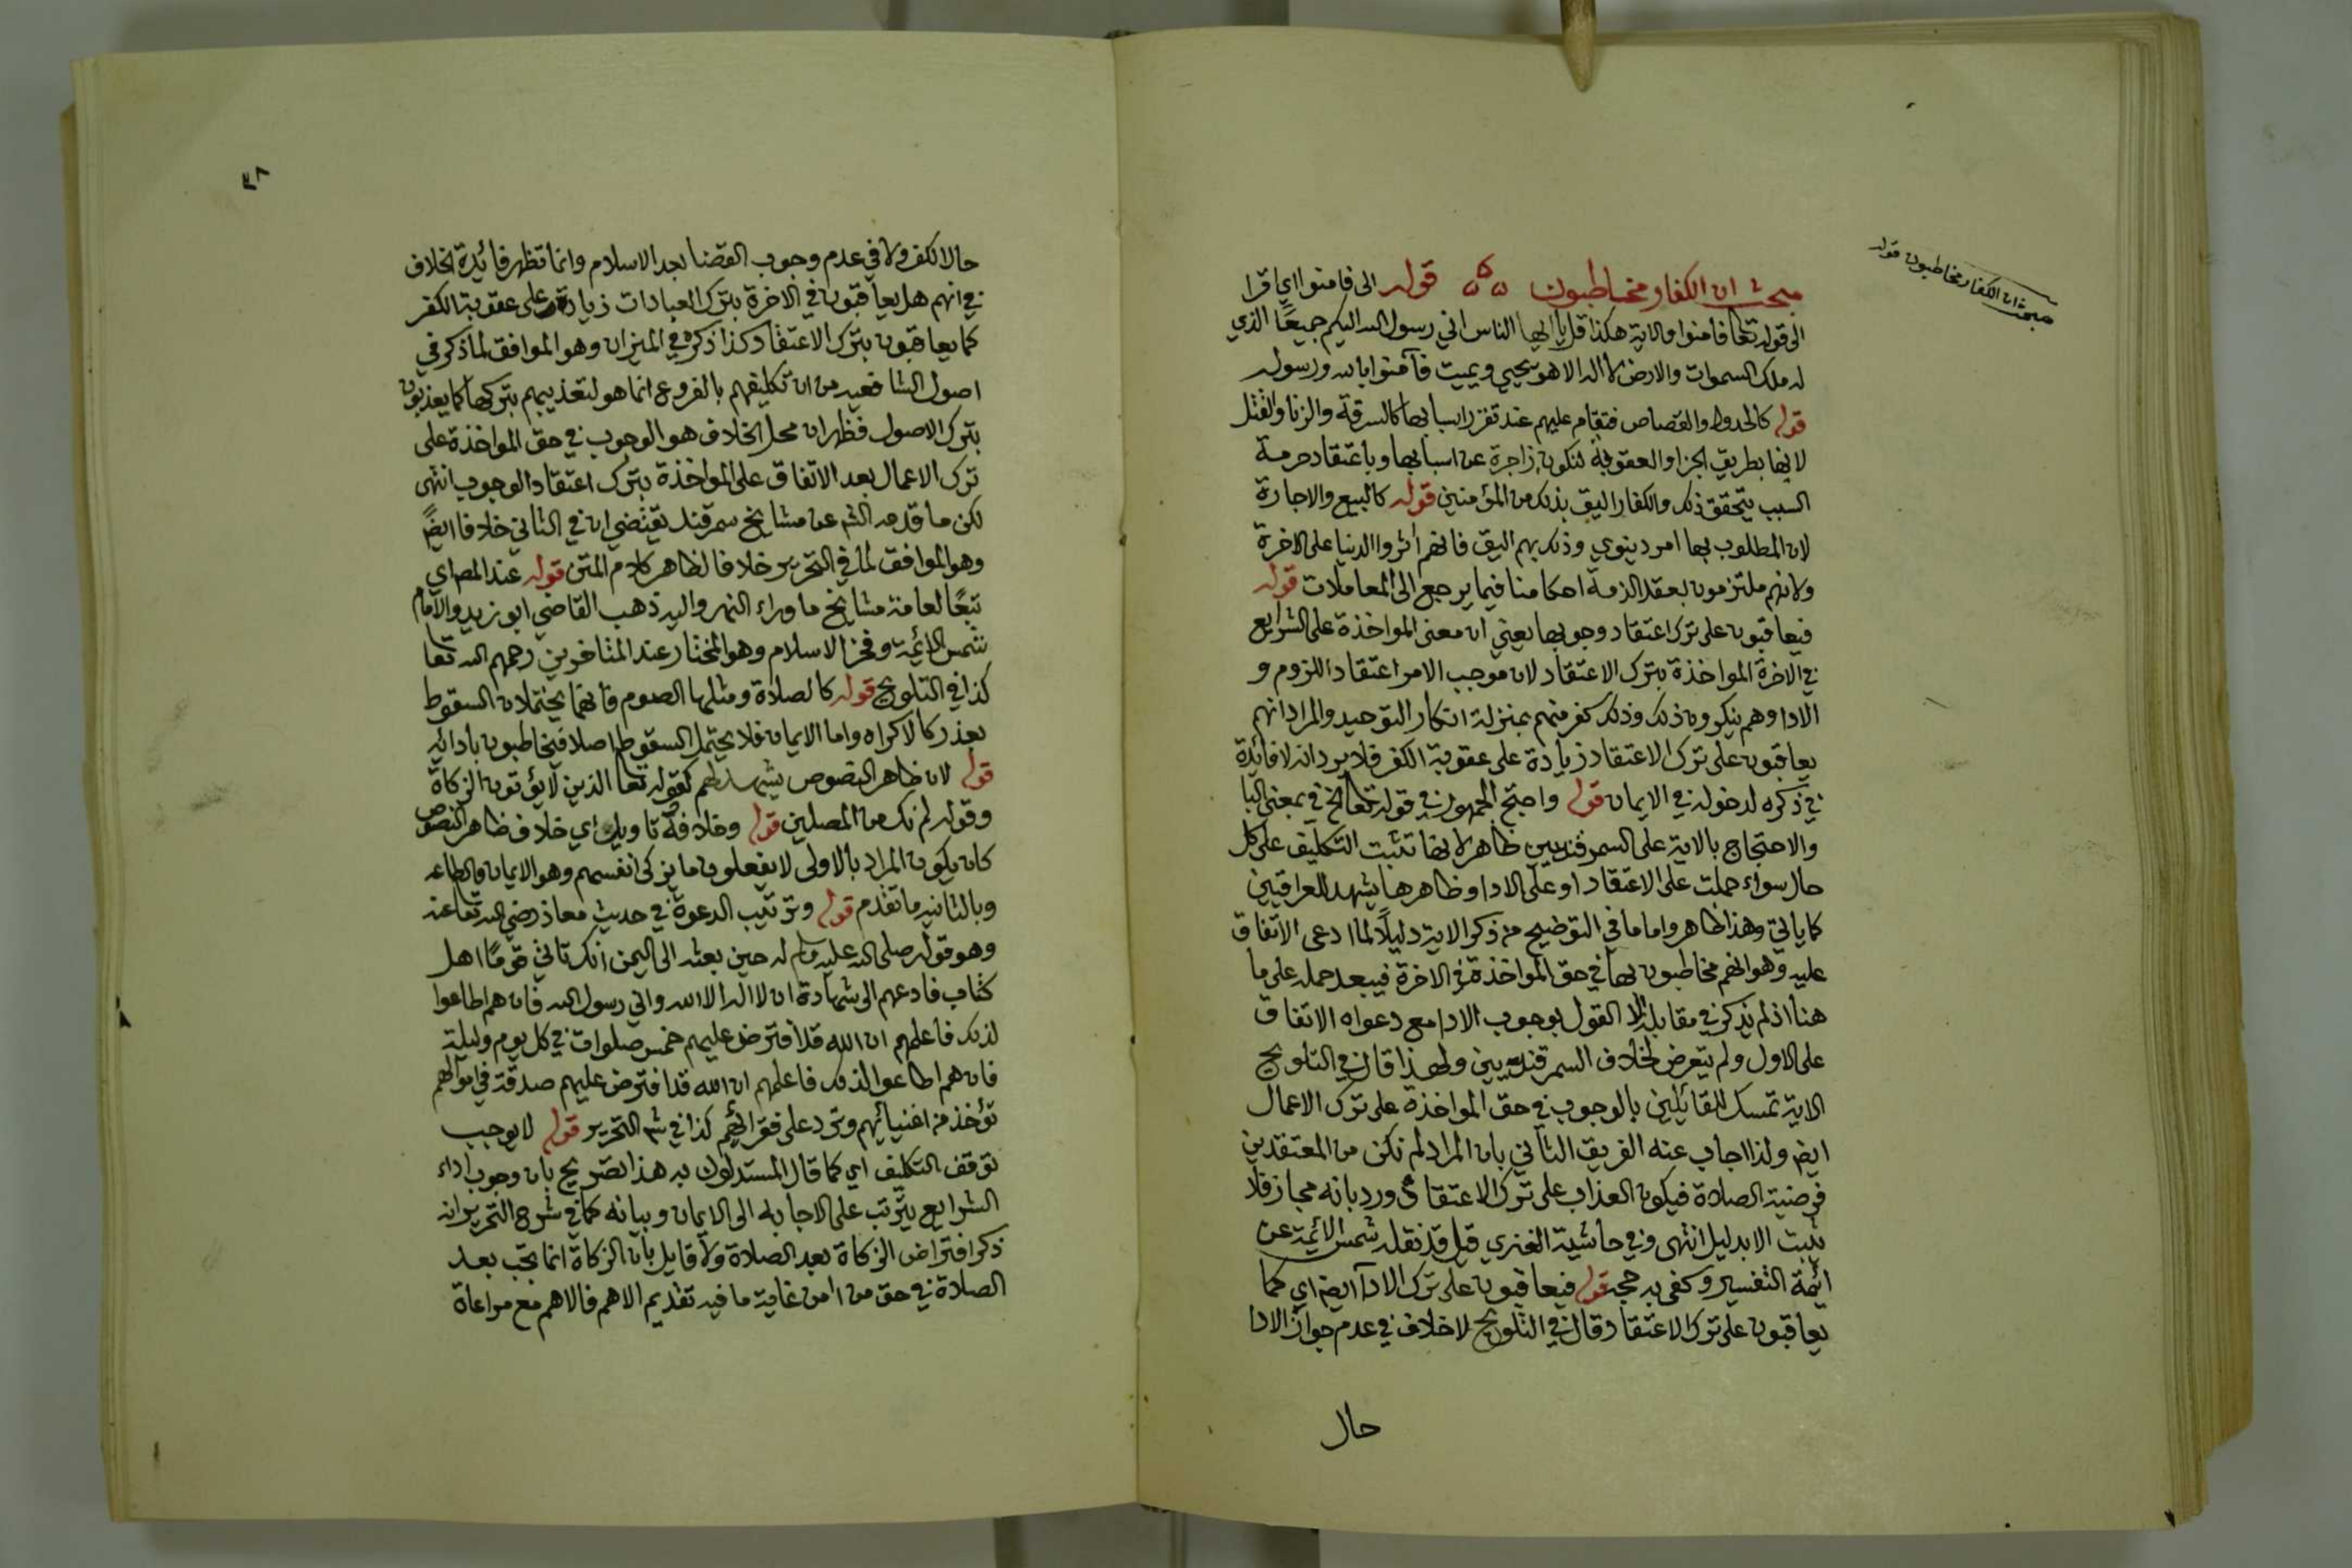 مبحث ان الكفار مخاطبون قوله
مبحث ان الكفار مخاطبون قوله الى فامنوا اي اقرا
الى قوله تعا فامنوا والاية هكذا قل يا ايها الناس اني رسول الله اليكم جميعًا الذي
له ملك السموات والارض لا اله الا هو يحيي ويميت فآمنوا بالله ورسوله
قوله كالحدود والقصاص فتقام عليهم عند تقرر اسبابها كالسرقة والزنا والقتل
لانها بطريق الجزا والعقوبة لتكون زاجرة عن اسبابها وباعتقاد حرمة
السبب يتحقق ذلك والكفار اليق بذلك من المؤمنين قوله كالبيع والاجارة
لان المطلوب بها امر دينوي وذلك بهم اليق فانهم اثروا الدنيا على الاخرة
ولانهم ملتزمون بعقد الذمة احكامنا فيما يرجع الى المعاملات قوله
فيعاقبون على ترك اعتقاد وجوبها يعني ان معنى المواخذة على الشرايع
في الاخرة المواخذة بترك الاعتقاد لان موجب الامر اعتقاد اللزوم و
الادا وهم ينكرون ذلك وذلك كفر منهم بمنزلة انكار التوحيد والمراد انهم
يعاقبون على ترك الاعتقاد زيادة على عقوبة الكفر فلا يرد انه لا فائدة
في ذكره لدخوله في الايمان قوله واحتج الجمهور في قوله تعالى الخ في بمعنى البا
والاحتجاج بالاية على السمرقنديين ظاهر لانها تثبت التكليف على كل
حال سواء حملت على الاعتقاد او على الادا وظاهرها يشهد للعراقيين
كما ياتي وهذا ظاهر واما ما في التوضيح من ذكر الاية دليلًا لما ادعى الاتفاق
عليه وهو انهم مخاطبون بها في حق المواخذة في الاخرة فيبعد حمله على ما
هنا اذ لم يذكر في مقابلة الا القول بوجوب الادا مع دعواه الاتفاق
على الاول ولم يتعرض لخلاف السمرقنديين ولهذا قال في التلويح
الاية تمسك للقائلين بالوجوب في حق المواخذة على ترك الاعمال
ايض ولذا اجاب عنه الفريق الثاني بان المراد لم نكن من المعتقدين
فرضية الصلاة فيكون العذاب على ترك الاعتقاد ورد بانه مجاز فلا
يثبت الا بدليل انتهى وفي حاشية الغنري قيل قد نقله شمس الائمة عن
ائمة التفسير وكفى به حجة قوله فيعاقبون على ترك الادآ ايض اي كما
يعاقبون على ترك الاعتقاد وقال في التلويح لا خلاف في عدم جواز الادا
حال
٤٨
حال الكفر ولا في عدم وجوب القضا بعد الاسلام وانما تظهر فائدة الخلاف
في انهم هل يعاقبون في الاخرة بترك العبادات زيادة على عقوبة الكفر
كما يعاقبون بترك الاعتقاد كذا ذكره في الميزان وهو الموافق لما ذكر في
اصول الشافعيه من ان تكليفهم بالفروع انما هو لتعذيبهم بتركها كما يعذبون
بترك الاصول فظهر ان محل الخلاف هو الوجوب في حق المواخذة على
ترك الاعمال بعد الاتفاق على المواخذة بترك اعتقاد الوجوب انتهى
لكن ما قدمه الشم عن مشايخ سمرقند يقتضي ان في الثاني خلافا ايضً
وهو الموافق لما في التحرير خلافا لظاهر كلام المتن قوله عند المص اي
تبعًا لعامة مشايخ ما وراء النهر واليه ذهب القاضي ابو زيد والامام
شمس الائمة وفخر الاسلام وهو المختار عند المتاخرين رحمهم الله تعا
كذا في التلويح قوله كالصلاة ومثلها الصوم فانهما يحتملان السقوط
بعذر كالاكراه واما الايمان فلا يحتمل السقوط اصلا فيخاطبون بادائه
قوله لان ظاهر النصوص يشهد لهم كقوله تعا الذين لا يؤتون الزكاة
وقوله لم نك من المصلين قوله وخلافه تاويل اي خلاف ظاهر النصوص
كان يكون المراد بالاولى لا يفعلون ما يزكى انفسهم وهو الايمان والطاعه
وبالثانيه ما تقدم قوله وترتيب الدعوة في حديث معاذ رضي الله تعا عنه
وهو قوله صلى الله عليه وسلم له حين بعثه الى اليمن انك تاتي قومًا اهل
كتاب فادعهم الى شهادة ان لا اله الا الله واني رسول الله فان هم اطاعوا
لذلك فاعلمهم ان الله قد افترض عليهم خمس صلوات في كل يوم وليلة
فان هم اطاعوا لذلك فاعلمهم ان الله قد افترض عليهم صدقة في اموالهم
تؤخذ من اغنيائهم وترد على فقرائهم كذا في شم التحرير قوله لا يوجب
توقف التكليف اي كما قال المستدلون به هذا تصريح بان وجوب اداء
الشرايع يترتب على الاجابه الى الايمان وبيانه كما في شرح التحرير انه
ذكر افتراض الزكاة بعد الصلاة ولا قايل بان الزكاة انما تجب بعد
الصلاة في حق من امن غاية ما فيه تقديم الاهم فالاهم مع مراعاة